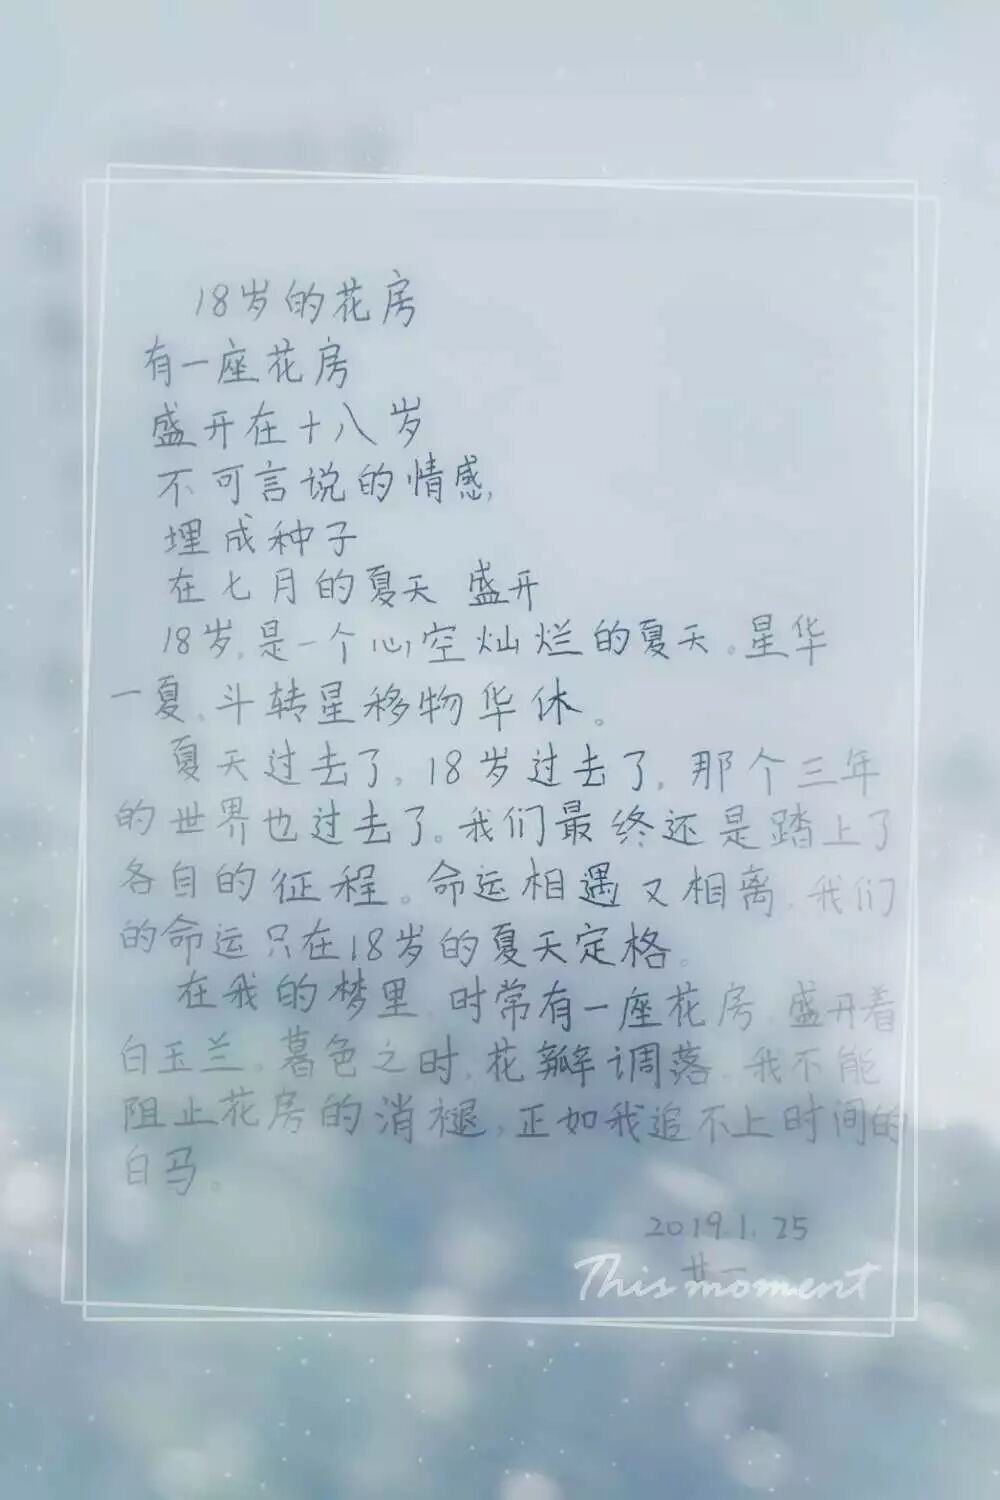 18岁的花房
有一座花房
盛开在十八岁
不可言说的情感,
埋成种子
在七月的夏天 盛开
18岁,是一个心空灿烂的夏天。星华
一夏,斗转星移物华休。
夏天过去了,18岁过去了,那个三年
的世界也过去了。我们最终还是踏上了
各自的征程。命运相遇又相离,我们
的命运只在18岁的夏天定格。
在我的梦里,时常有一座花房,盛开着
白玉兰,暮色之时,花瓣调落,我不能
阻止花房的消褪,正如我追不上时间的
白马。
2019.1.25
廿一
This moment